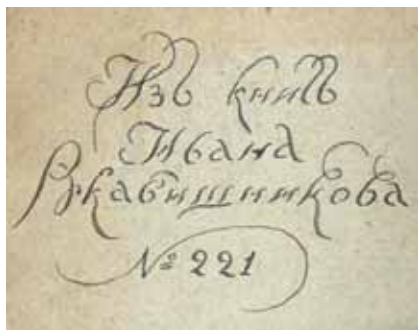 Изъ книгъ
Ивана
Рукавишникова
№ 221